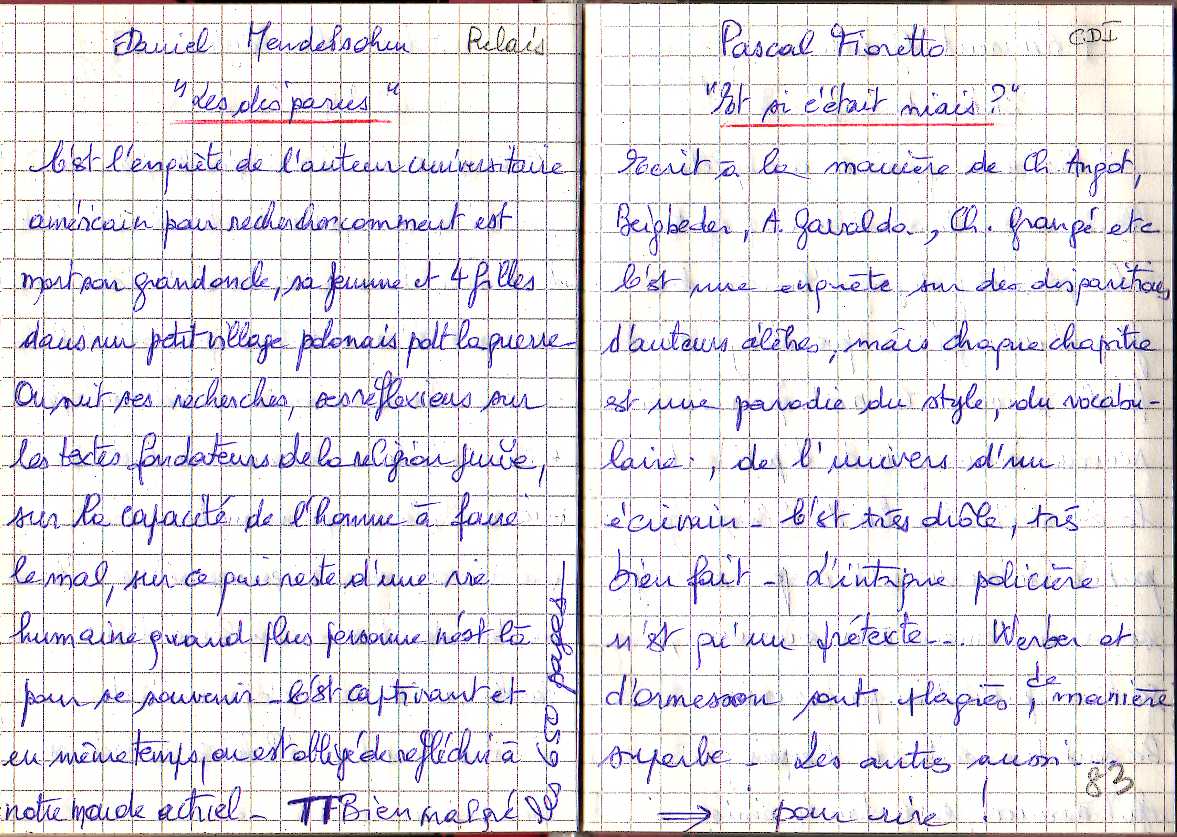 Daniel Mendelsohn Relais
"Les disparus"
C'est l'enquête de l'auteur universitaire
américain pour rechercher comment est
mort son grand oncle, sa femme et 4 filles
dans un petit village polonais pdt la guerre
On suit ses recherches, ses réflexions sur
les textes fondateurs de la religion juive,
sur la capacité de l'homme à faire
le mal, sur ce qui reste d'une vie
humaine quand plus personne n'est là
pour se souvenir - C'est captivant et
en même temps, on est obligé de réfléchir à
notre monde actuel - TT Bien malgré
les 650 pages -
Pascal Fioretto CDI
"Et si c'était niais ?"
Ecrit à la manière de Ch Angot,
Beigbeder, A. Gavalda, Ch. Grangé etc
C'est une enquête sur des disparitions
d'auteurs célèbres, mais chaque chapitre
est une parodie du style, du vocabu-
laire, de l'univers d'un
écrivain - C'est très drôle, très
bien fait - L'intrigue policière
n'est qu'un prétexte... Werber et
d'Ormesson sont plagiés, de manière
superbe - Les autres aussi...
83
⇒ pour rire !